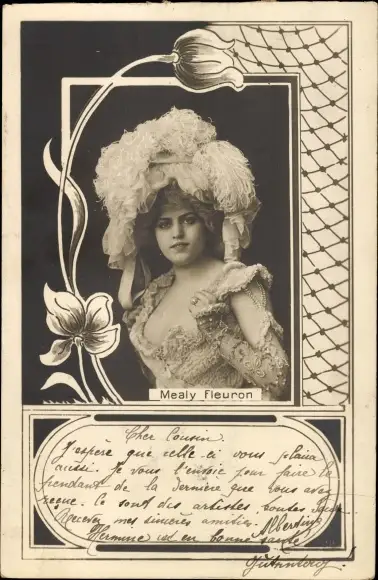 Mealy Fleuron
Cher Cousin
J'espère que celle-ci vous plaira
aussi. Je vous l'envoie pour faire le
pendant de la dernière que vous avez
reçue. Ce sont des artistes toutes
Recevez mes sincères amitiés. Albertine
Hermine est en bonne santé